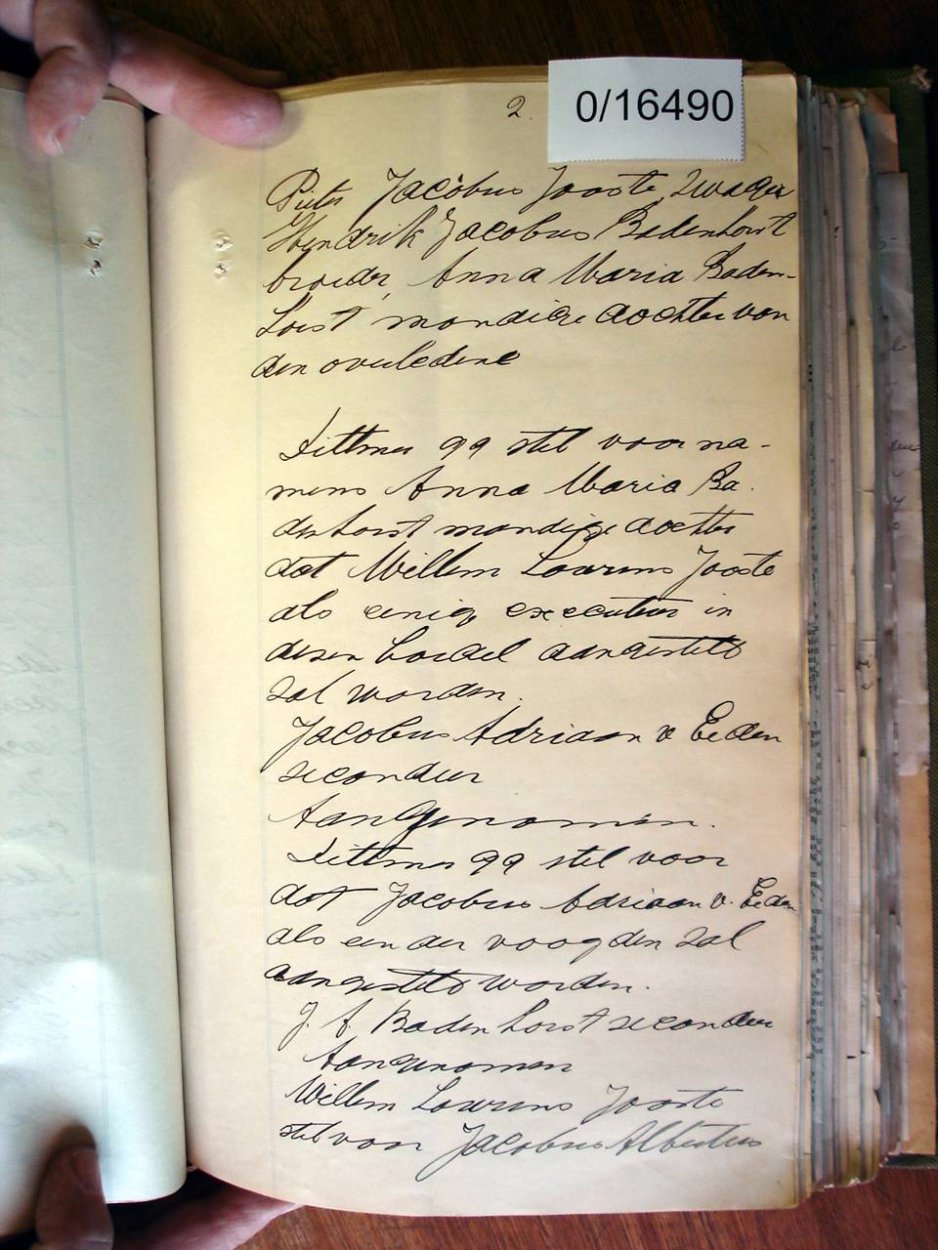 2.
0/16490
Pieter Jacobus Jooste, Zwager
Hendrik Jacobus Badenhorst
broeder, Anna Maria Baden-
horst mondige dochter van
den overledene
Dittmer qq stel voor na-
mens Anna Maria Ba
denhorst mondige dochter
dat Willem Lourens Jooste
als eenig executeur in
desen boedel aangesteld
zal worden.
Jacobus Adriaan v Eeden
secondeer
Aangenomen.
Dittmer qq stel voor
dat Jacobus Adriaan v. Eeden
als een der voogden zal
aangesteld worden.
J. A. Badenhorst secondeer
Aangenomen
Willem Lourens Jooste
stel voor Jacobus Albertus